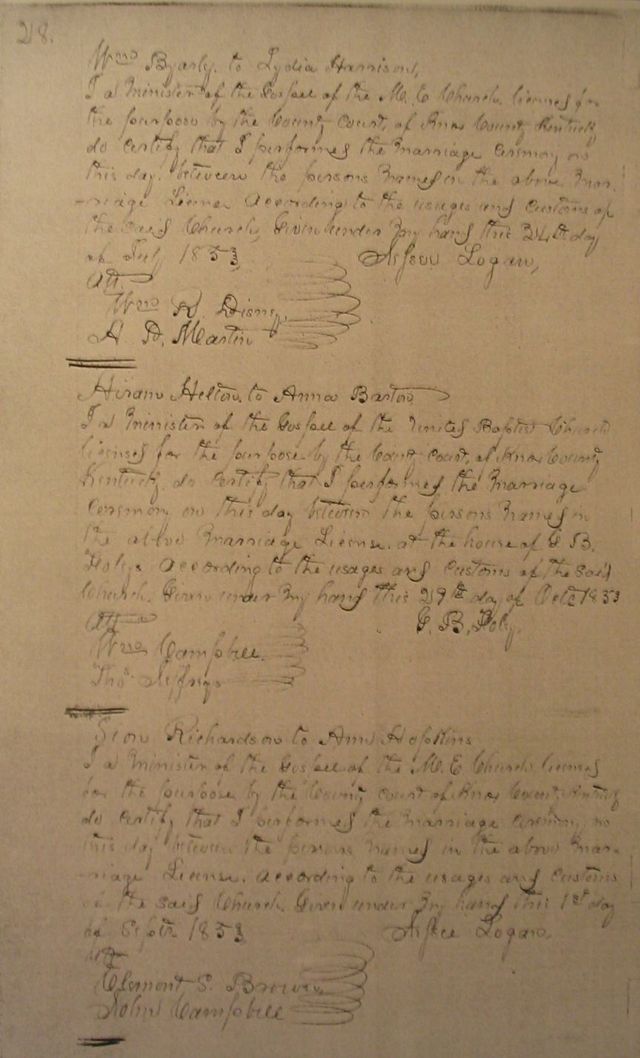 28.
Wm Byarly. to Lydia Harrison,
I a Minister of the Gospel of the M. E Church. licensed for
the purpose by the County Court, of Knox County Kentucky
do certify that I performed the marriage ceremony on
this day. between the persons named in the above mar-
-riage License according to the usages and customs of
the said Church, Given under my hand this 24th day
of July 1853 Logan,
Att.
Wm R. Disney.
A. D. Martin
Hiram Helton. to Anna Barton
I a minister of the Gospel of the United Baptist Church
licensed for the purpose by the County Court, of Knox County
Kentucky. do certify that I performed the marriage
ceremony on this day between the persons named in
the above marriage License. at the house of G B.
Foley. according to the usages and customs of the said
Church. Given under my hand this 29th day of Octr 1853
Att G. B. Foley.
Wm Campbell.
Thos Jeffrys
Richardson to Ann Hopkins
I a Minister of the Gospel of the M. E. Church. licensed
for the purpose by the County Court of Knox County Kentucky
do certify that I performed the marriage ceremony, on
this day between the persons named in the above mar-
-riage License. according to the usages and customs
of the said Church. Given under my hand this 1st day
of Septr 1853 Logan,
Att
Clemont S. Brown
John Campbell